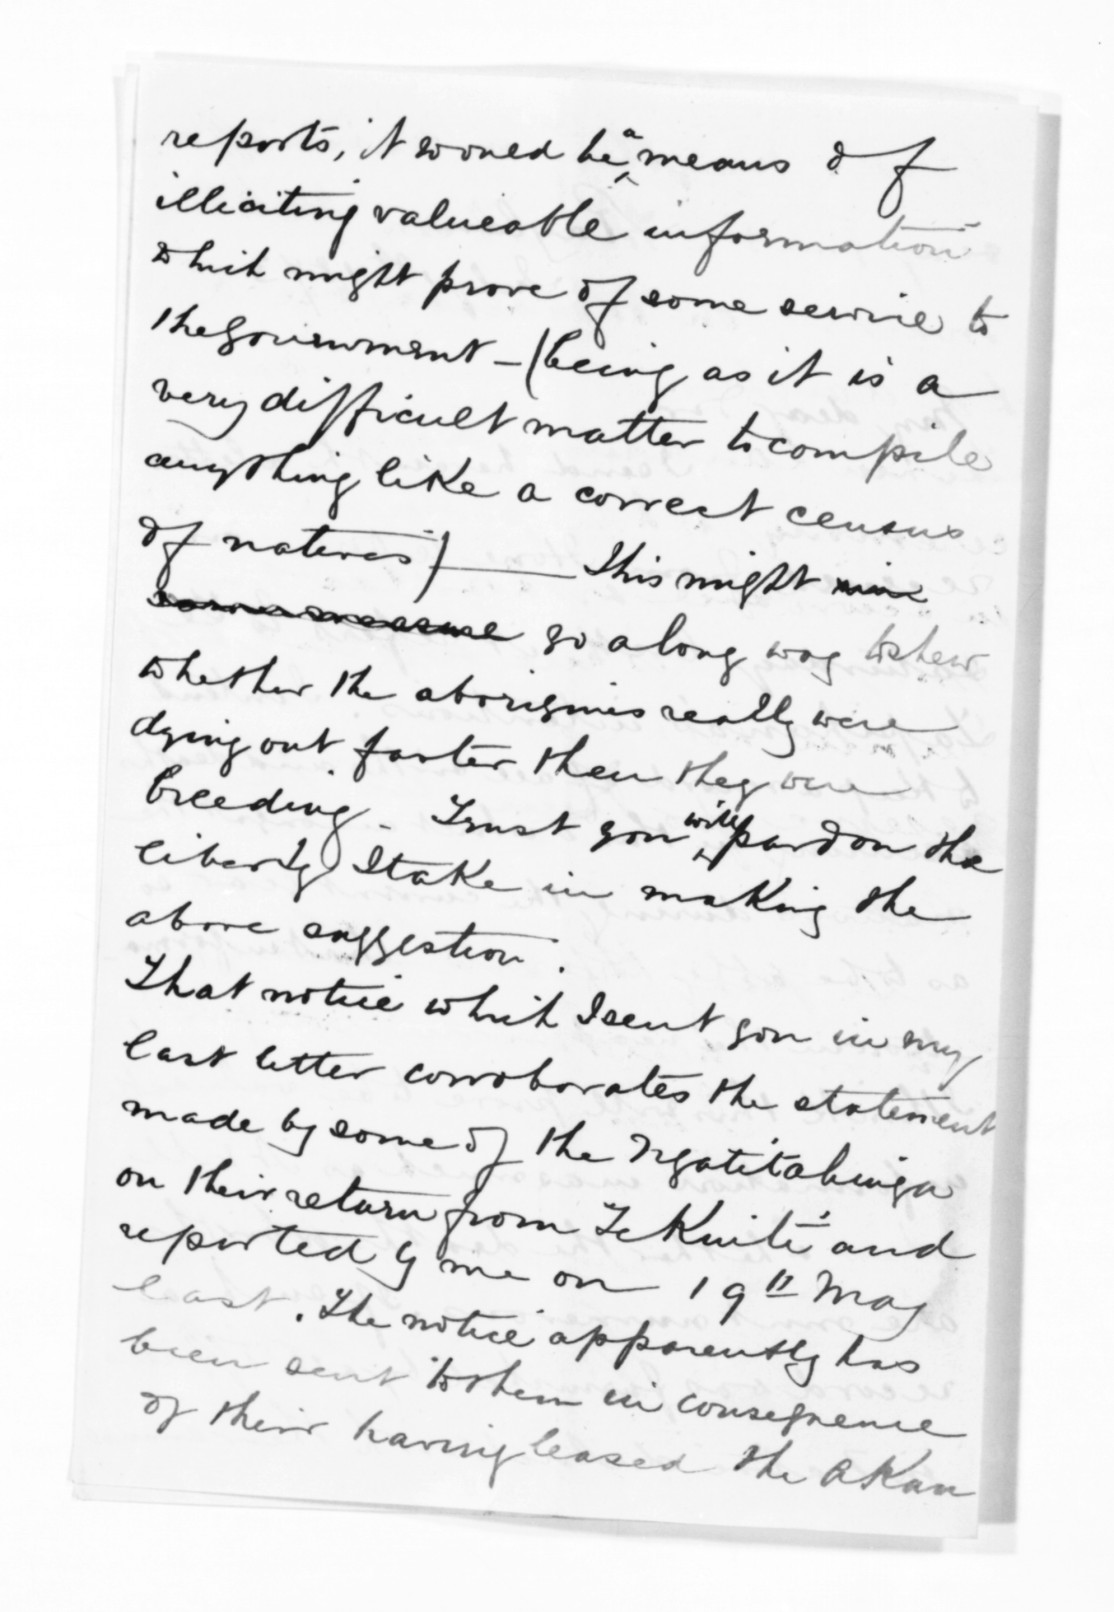 reports, it would be a means of
illiciting valueable information
which might prove of some service to
the Government - (being as it is a
very difficult matter to compile
anything like a correct census
of natives) — This might
some measure go a long way to shew
whether the aborigines really were
dying out faster then they were
breeding - Trust you will pardon the
liberty I take in making the
above suggestion.
That notice which I sent you in my
last letter corroborates the statement
made by some of the Ngatitahinga
on their return from Te Kuiti and
reported by me on 19th May
last. The notice apparently has
been sent to them in consequence
of their having leased the Akau